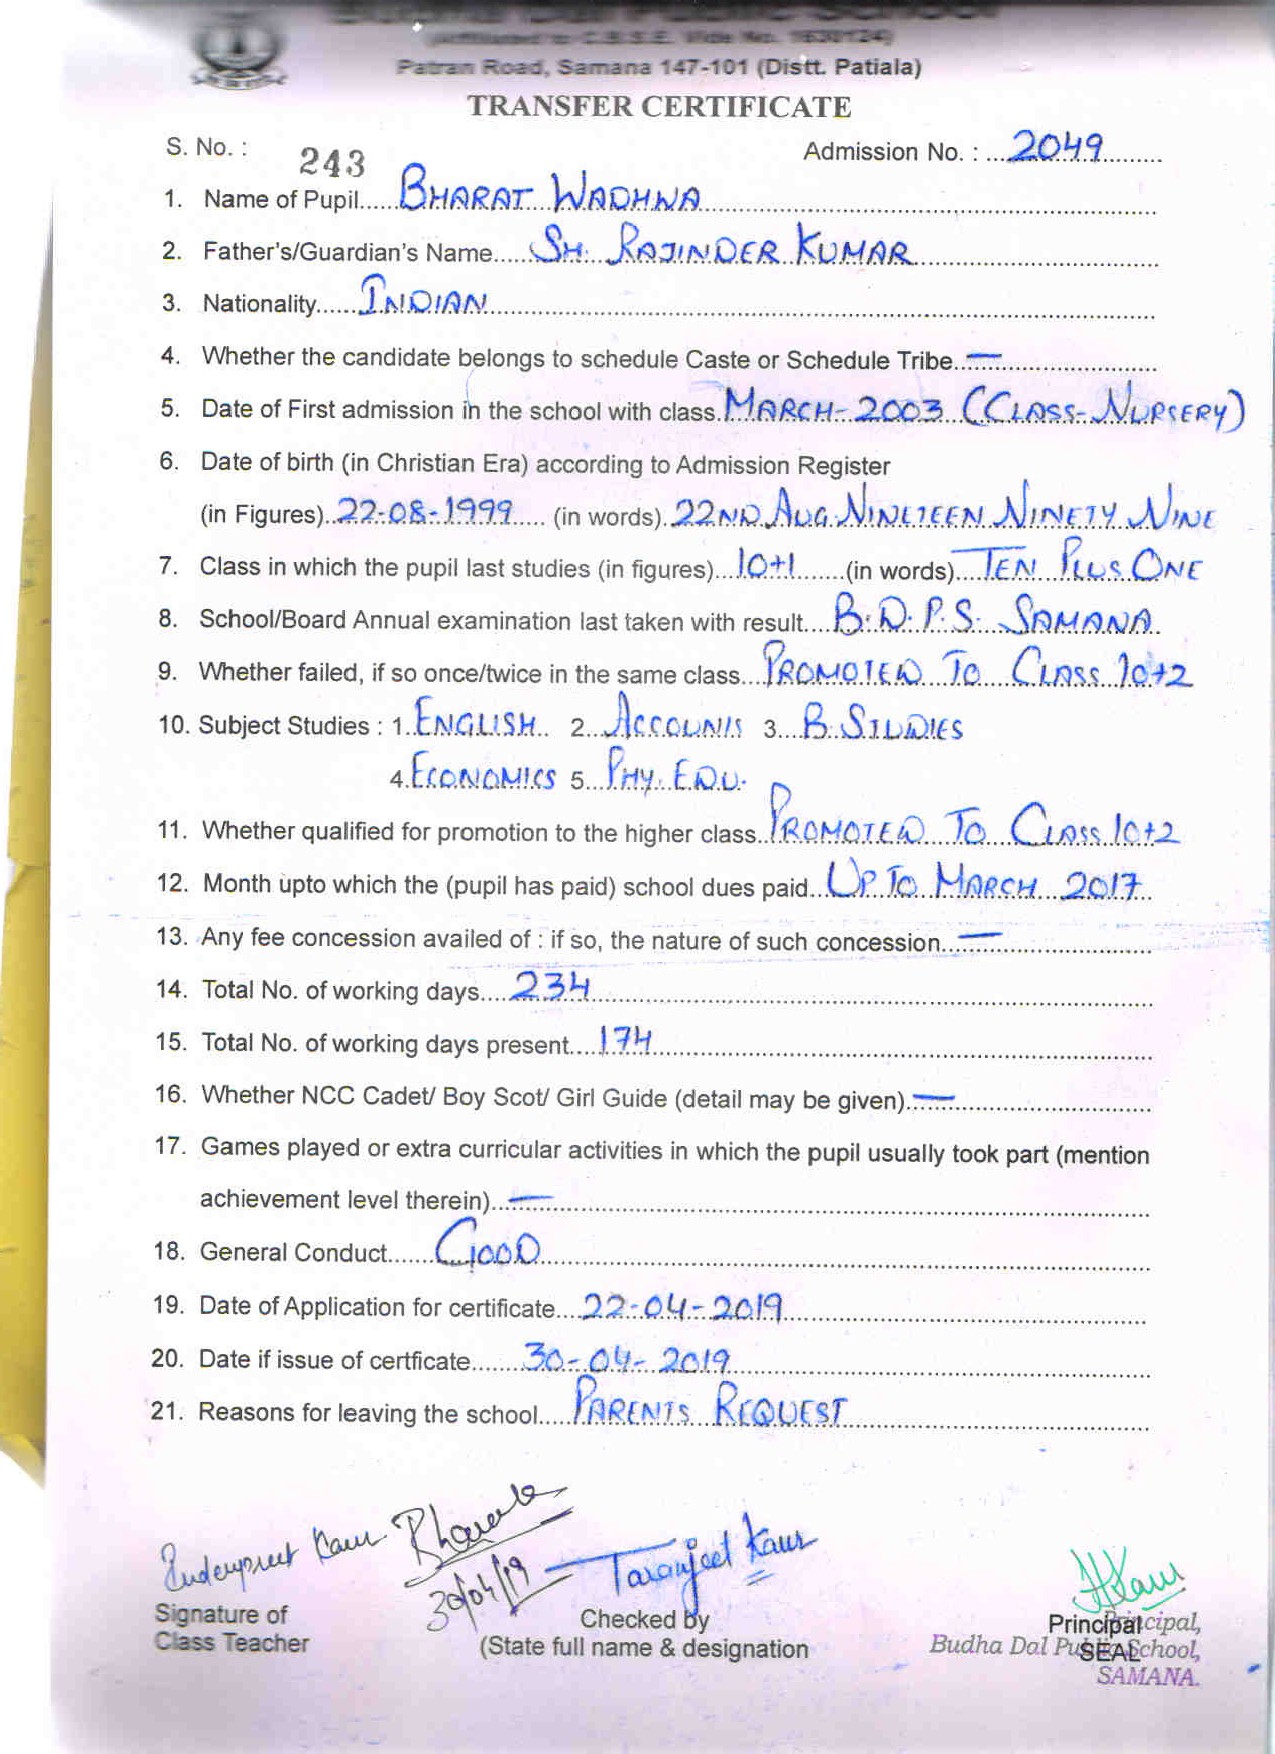 Budha Dal Public School
(Affiliated to C.B.S.E. Vide No. 1630124)
Patran Road, Samana 147-101 (Distt. Patiala)
TRANSFER CERTIFICATE
S. No. : 243 Admission No. : ...2049
1. Name of Pupil......BHARAT WADHWA
2. Father's/Guardian's Name......SH. RAJINDER KUMAR
3. Nationality......INDIAN
4. Whether the candidate belongs to schedule Caste or Schedule Tribe..—
5. Date of First admission in the school with class.MARCH-2003 (CLASS-NURSERY)
6. Date of birth (in Christian Era) according to Admission Register
(in Figures)..22-08-1999.... (in words)..22ND AUG NINETEEN NINETY NINE
7. Class in which the pupil last studies (in figures)...10+1......(in words)....TEN PLUS ONE
8. School/Board Annual examination last taken with result....B.D.P.S. SAMANA.
9. Whether failed, if so once/twice in the same class...PROMOTED TO CLASS 10+2
10. Subject Studies : 1.ENGLISH.. 2...ACCOUNTS 3....B.STUDIES
4.ECONOMICS 5...PHY. EDU.
11. Whether qualified for promotion to the higher class..PROMOTED TO CLASS 10+2
12. Month upto which the (pupil has paid) school dues paid...UP TO MARCH 2017
13. Any fee concession availed of : if so, the nature of such concession...—
14. Total No. of working days....234
15. Total No. of working days present....174
16. Whether NCC Cadet/ Boy Scot/ Girl Guide (detail may be given).—
17. Games played or extra curricular activities in which the pupil usually took part (mention
achievement level therein)..—
18. General Conduct......GOOD
19. Date of Application for certificate....22-04-2019
20. Date if issue of certficate.......30-04-2019
21. Reasons for leaving the school....PARENTS REQUEST
Kaur
30/04/19 Taranjeet Kaur
Signature of
Class Teacher
Checked by
(State full name & designation
Principal
SEAL
Principal,
Budha Dal Public School,
SAMANA.